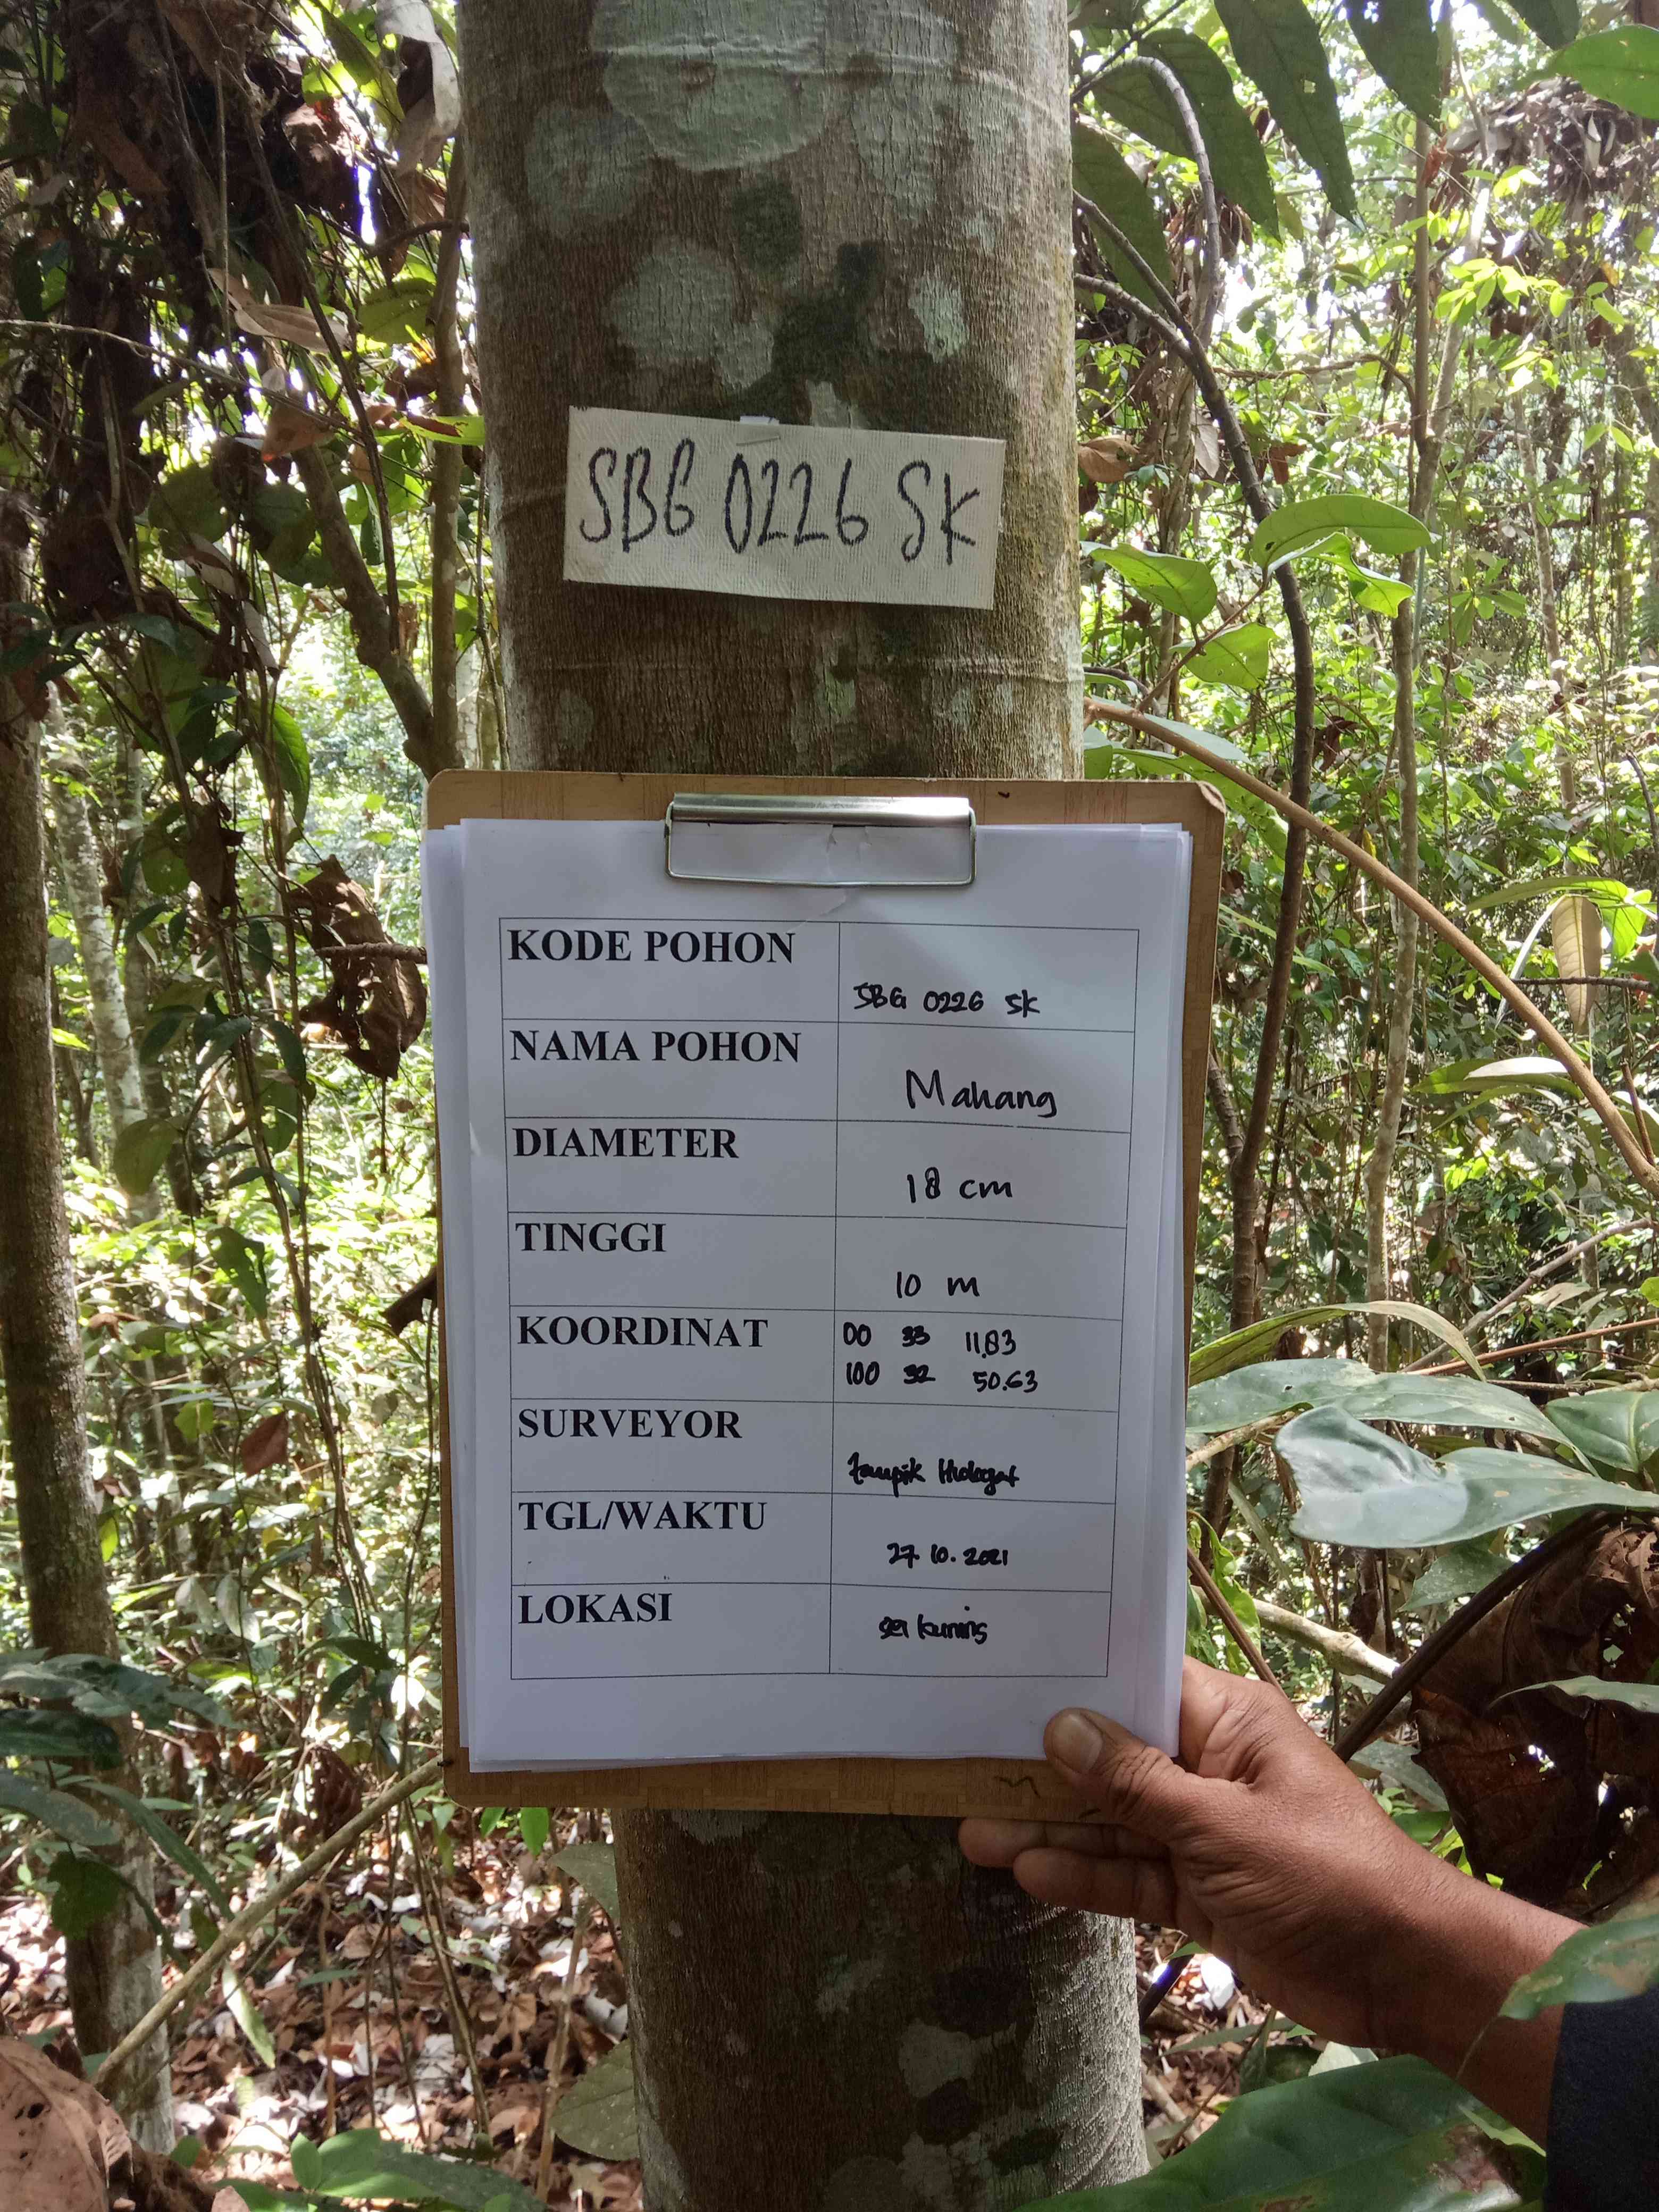 SBG 0226 SK
KODE POHON
SBG 0226 SK
NAMA POHON
Mahang
DIAMETER
18 cm
TINGGI
10 m
KOORDINAT
00 33 11,83
100 32 50.63
SURVEYOR
taupik Hidayat
TGL/WAKTU
27.10.2021
LOKASI
sei kuning